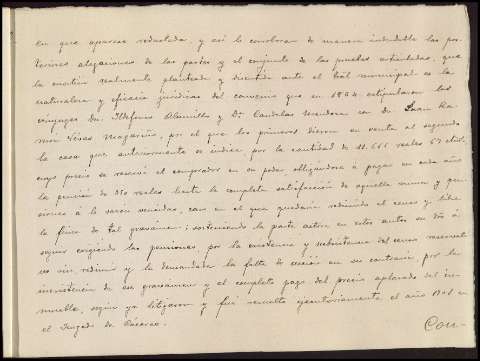 en que aparece redactada, y así lo corroboran de manera indudable las pos-
teriores alegaciones de las partes y el conjunto de las pruebas articuladas, que
la cuestión realmente planteada y discutida ante el Tral municipal es la
naturaleza y eficacia jurídicas del convenio que en 1854 estipularon los
cónyuges Dn. Ildefonso Alamillo y Dª Candelas Mendoza con dn Juan Ra-
mon Vivas Magariño, por el que los primeros dieron en venta al segundo
la casa que anteriormente se indica por la cantidad de 11.666 reales 67 cénts,
cuyo precio se reservó el comprador en su poder, obligándose á pagar en cada año
la pensión de 350 reales hasta la completa satisfacción de aquella suma y pen-
siones á la sazon vencidas, caso en el que quedaría redimido el censo y libre
la finca de tal gravamen; sosteniendo la parte actora en estos autos su dro á
seguir exigiendo las pensiones, por la existencia y subsistencia del censo reservati-
vo sin redimir y la demandada la falta de acción en su contraria por la
inexistencia de ese gravamen y el completo pago del precio aplazado del in-
mueble, según ya litigaron y fué resuelto ejecutoriamente el año en
el Juzgado de Cáceres.
Con-